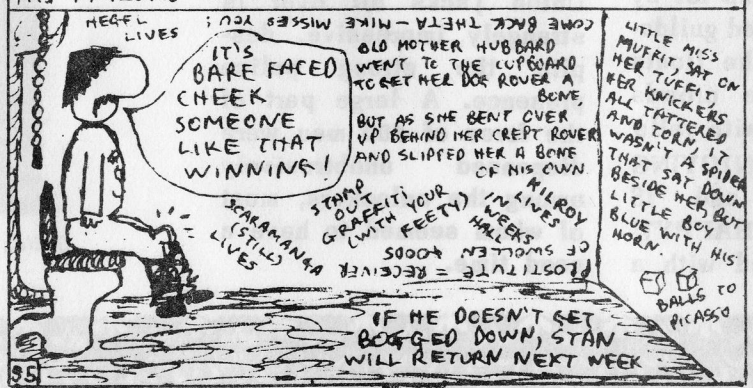 HEGEL
LIVES
COME BACK THETA - MIKE MISSES YOU;
IT'S
BARE FACED
CHEEK
SOMEONE
LIKE THAT
WINNING
OLD MOTHER HUBBARD
WENT TO THE CUPBOARD
TO GET HER DOG ROVER A
BONE
BUT AS SHE BENT OVER
UP BEHIND HER CREPT ROVER
AND SLIPPED HER A BONE
OF HIS OWN.
LITTLE MISS
MUFFIT, SAT ON
HER TUFFIT
HER KNICKERS
ALL TATTERED
AND TORN, IT
WASN'T A SPIDER
THAT SAT DOWN
BESIDE HER BUT
LITTLE BOY
BLUE WITH HIS
HORN.
SCARAMANGA
(STILL)
LIVES
STAMP
OUT
GRAFFITI
(WITH YOUR
FEET)
KILROY
PROSTITUTE = RECEIVER
OF SWOLLEN GOODS
BALLS TO
PICASSO
IF HE DOESN'T GET
BOGGED DOWN, STAN
WILL RETURN NEXT WEEK
95